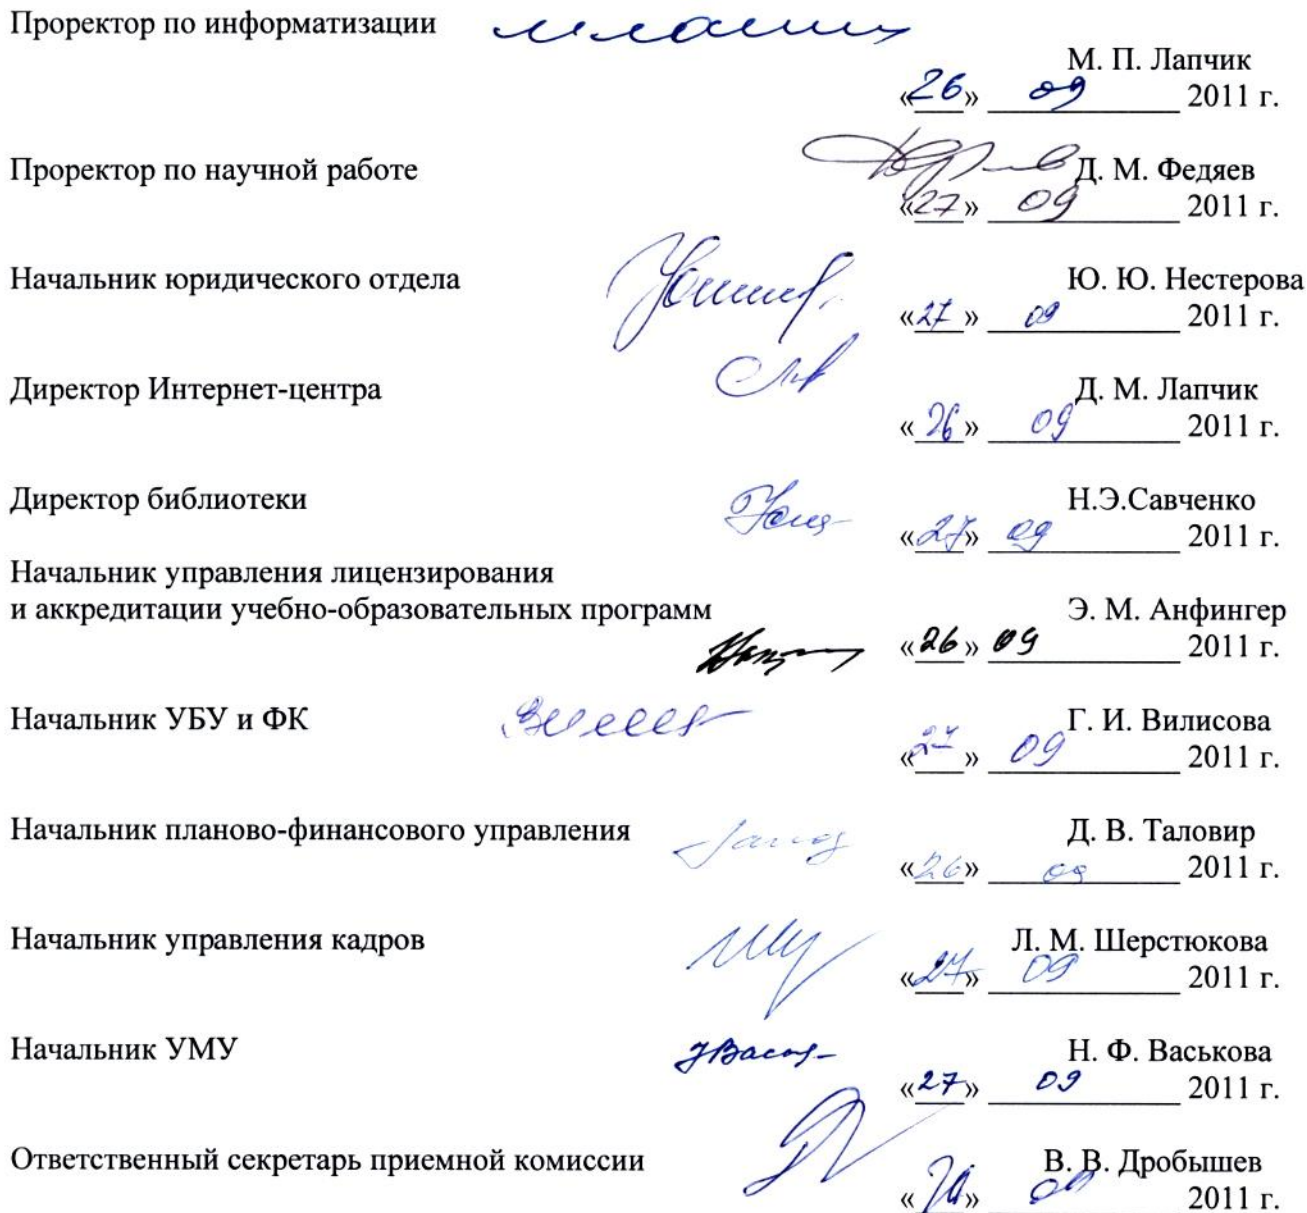 Проректор по информатизации
М. П. Лапчик
«26» 09 2011 г.
Проректор по научной работе
Д. М. Федяев
«27» 09 2011 г.
Начальник юридического отдела
Ю. Ю. Нестерова
«27» 09 2011 г.
Директор Интернет-центра
Д. М. Лапчик
«26» 09 2011 г.
Директор библиотеки
Н.Э.Савченко
«27» 09 2011 г.
Начальник управления лицензирования
и аккредитации учебно-образовательных программ
Э. М. Анфингер
«26» 09 2011 г.
Начальник УБУ и ФК
Г. И. Вилисова
«27» 09 2011 г.
Начальник планово-финансового управления
Д. В. Таловир
«26» 09 2011 г.
Начальник управления кадров
Л. М. Шерстюкова
«27» 09 2011 г.
Начальник УМУ
Н. Ф. Васькова
«27» 09 2011 г.
Ответственный секретарь приемной комиссии
В. В. Дробышев
2011 г.